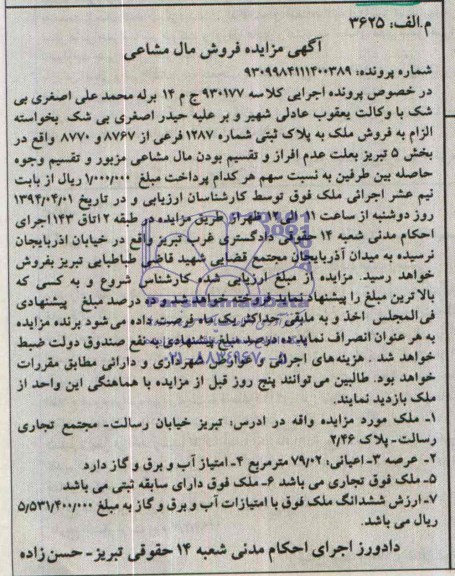 م.الف: ۳۶۲۵
آگهی مزایده فروش مال مشاعی
شماره پرونده: ۹۳۰۹۹۸۴۱۱۱۴۰۰۳۸۹
در خصوص پرونده اجرایی کلاسه ۹۳۰۱۷۷ ج م ۱۴ برله محمد علی اصغری بی
شک با وکالت یعقوب عادلی شهیر و بر علیه حیدر اصغری بی شک بخواسته
الزام به فروش ملک به پلاک ثبتی شماره ۱۲۸۷ فرعی از ۸۷۶۷ و ۸۷۷۰ واقع در
بخش ۵ تبریز بعلت عدم افراز و تقسیم بودن مال مشاعی مزبور و تقسیم وجوه
حاصله بین طرفین به نسبت سهم هر کدام پرداخت مبلغ ۱/۰۰۰/۰۰۰ ریال از بابت
نیم عشر اجرائی ملک فوق توسط کارشناسان ارزیابی و در تاریخ ۱۳۹۴/۰۴/۰۱
روز دوشنبه از ساعت ۱۱ الی ۱۲ ظهر از طریق مزایده در طبقه ۲ اتاق ۱۴۳ اجرای
احکام مدنی شعبه ۱۴ حقوقی دادگستری غرب تبریز واقع در خیابان اذربایجان
نرسیده به میدان آذربایجان مجتمع قضایی شهید قاضی طباطبایی تبریز بفروش
خواهد رسید. مزایده از مبلغ ارزیابی شده کارشناس شروع و به کسی که
بالا ترین مبلغ را پیشنهاد نماید فروخته خواهد شد و ده درصد مبلغ پیشنهادی
فی المجلس اخذ و به مابقی حداکثر یک ماه فرصت داده می شود برنده مزایده
به هر عنوان انصراف نماید ده درصد مبلغ پیشنهادی به نفع صندوق دولت ضبط
خواهد شد . هزینه های اجرائی و عوارض شهرداری و دارائی مطابق مقررات
خواهد بود. طالبین می توانند پنج روز قبل از مزایده با هماهنگی این واحد از
ملک بازدید نمایند.
۱- ملک مورد مزایده واقه در ادرس: تبریز خیابان رسالت- مجتمع تجاری
رسالت- پلاک ۲/۴۶
۲- عرصه ۳- اعیانی: ۷۹/۰۲ مترمربع ۴- امتیاز آب و برق و گاز دارد
۵- ملک فوق تجاری می باشد ۶- ملک فوق دارای سابقه ثبتی می باشد
۷- ارزش ششدانگ ملک فوق با امتیازات آب و برق و گاز به مبلغ ۵/۵۳۱/۴۰۰/۰۰۰
ریال می باشد.
دادورز اجرای احکام مدنی شعبه ۱۴ حقوقی تبریز - حسن زاده